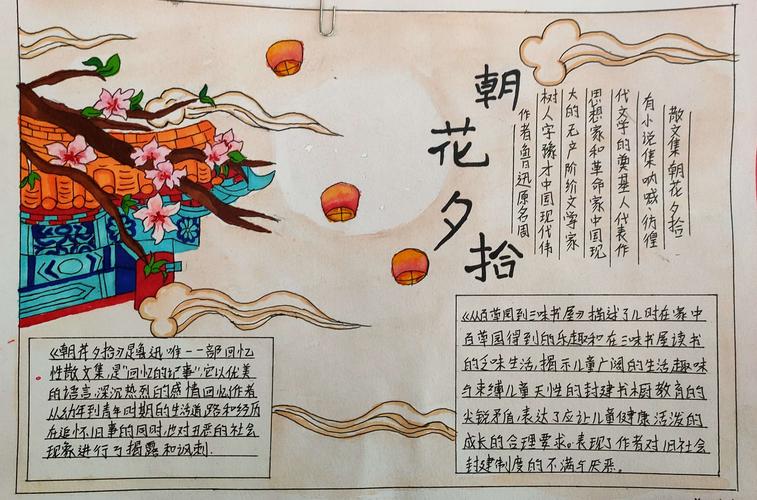 朝花夕拾
作者鲁迅原名周
树人字豫才中国现代伟
大的无产阶阶文学家
思想家和革命家中国现
代文学的奠基人代表作
有小说集呐喊、彷徨
散文集朝花夕拾
《朝花夕拾》是鲁迅唯一一部回忆
性散文集,是"回忆的记事".它以优美
的语言,深沉热烈的感情回忆作者
从幼年到青年时期的生活道路和经历
在追怀旧事的同时,也对丑恶的社会
现象进行了揭露和讽刺.
《从百草园到三味书屋》描述了儿时在家中
百草园得到的乐趣和在三味书屋读书
的乏味生活,揭示儿童广阔的生活趣味
与束缚儿童天性的封建书橱教育的
尖锐矛盾,表达了应让儿童健康活泼的
成长的合理要求。表现了作者对旧社会
封建制度的不满与厌恶。